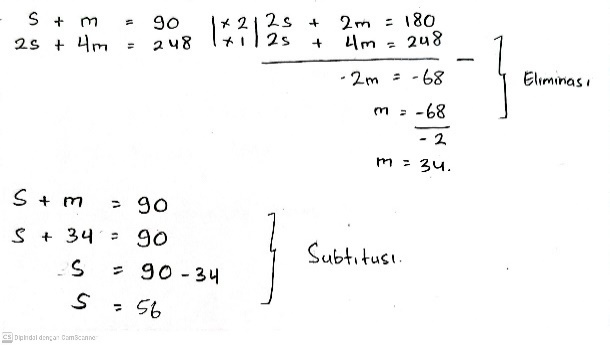 S + m = 90 |×2| 2s + 2m = 180
2s + 4m = 248 |×1| 2s + 4m = 248 -
-2m = -68
m = -68
-2
m = 34.
Eliminasi
S + m = 90
S + 34 = 90
S = 90 - 34
S = 56
Subtitusi.
CS Dipindai dengan CamScanner